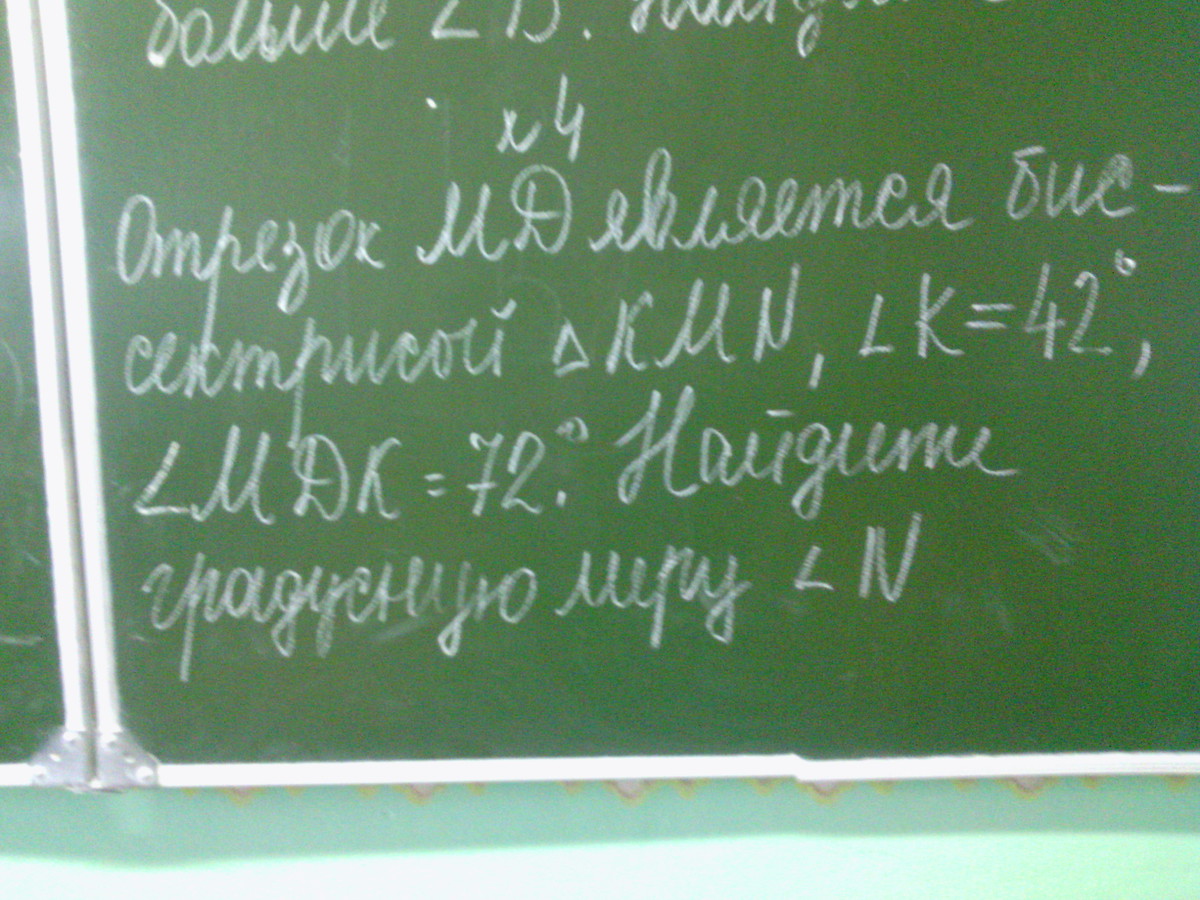 больше ∠B. Найди
x4
Отрезок MD является бис-
сектрисой △KMN, ∠K=42°,
∠MDK=72°. Найдите
градусную меру ∠N